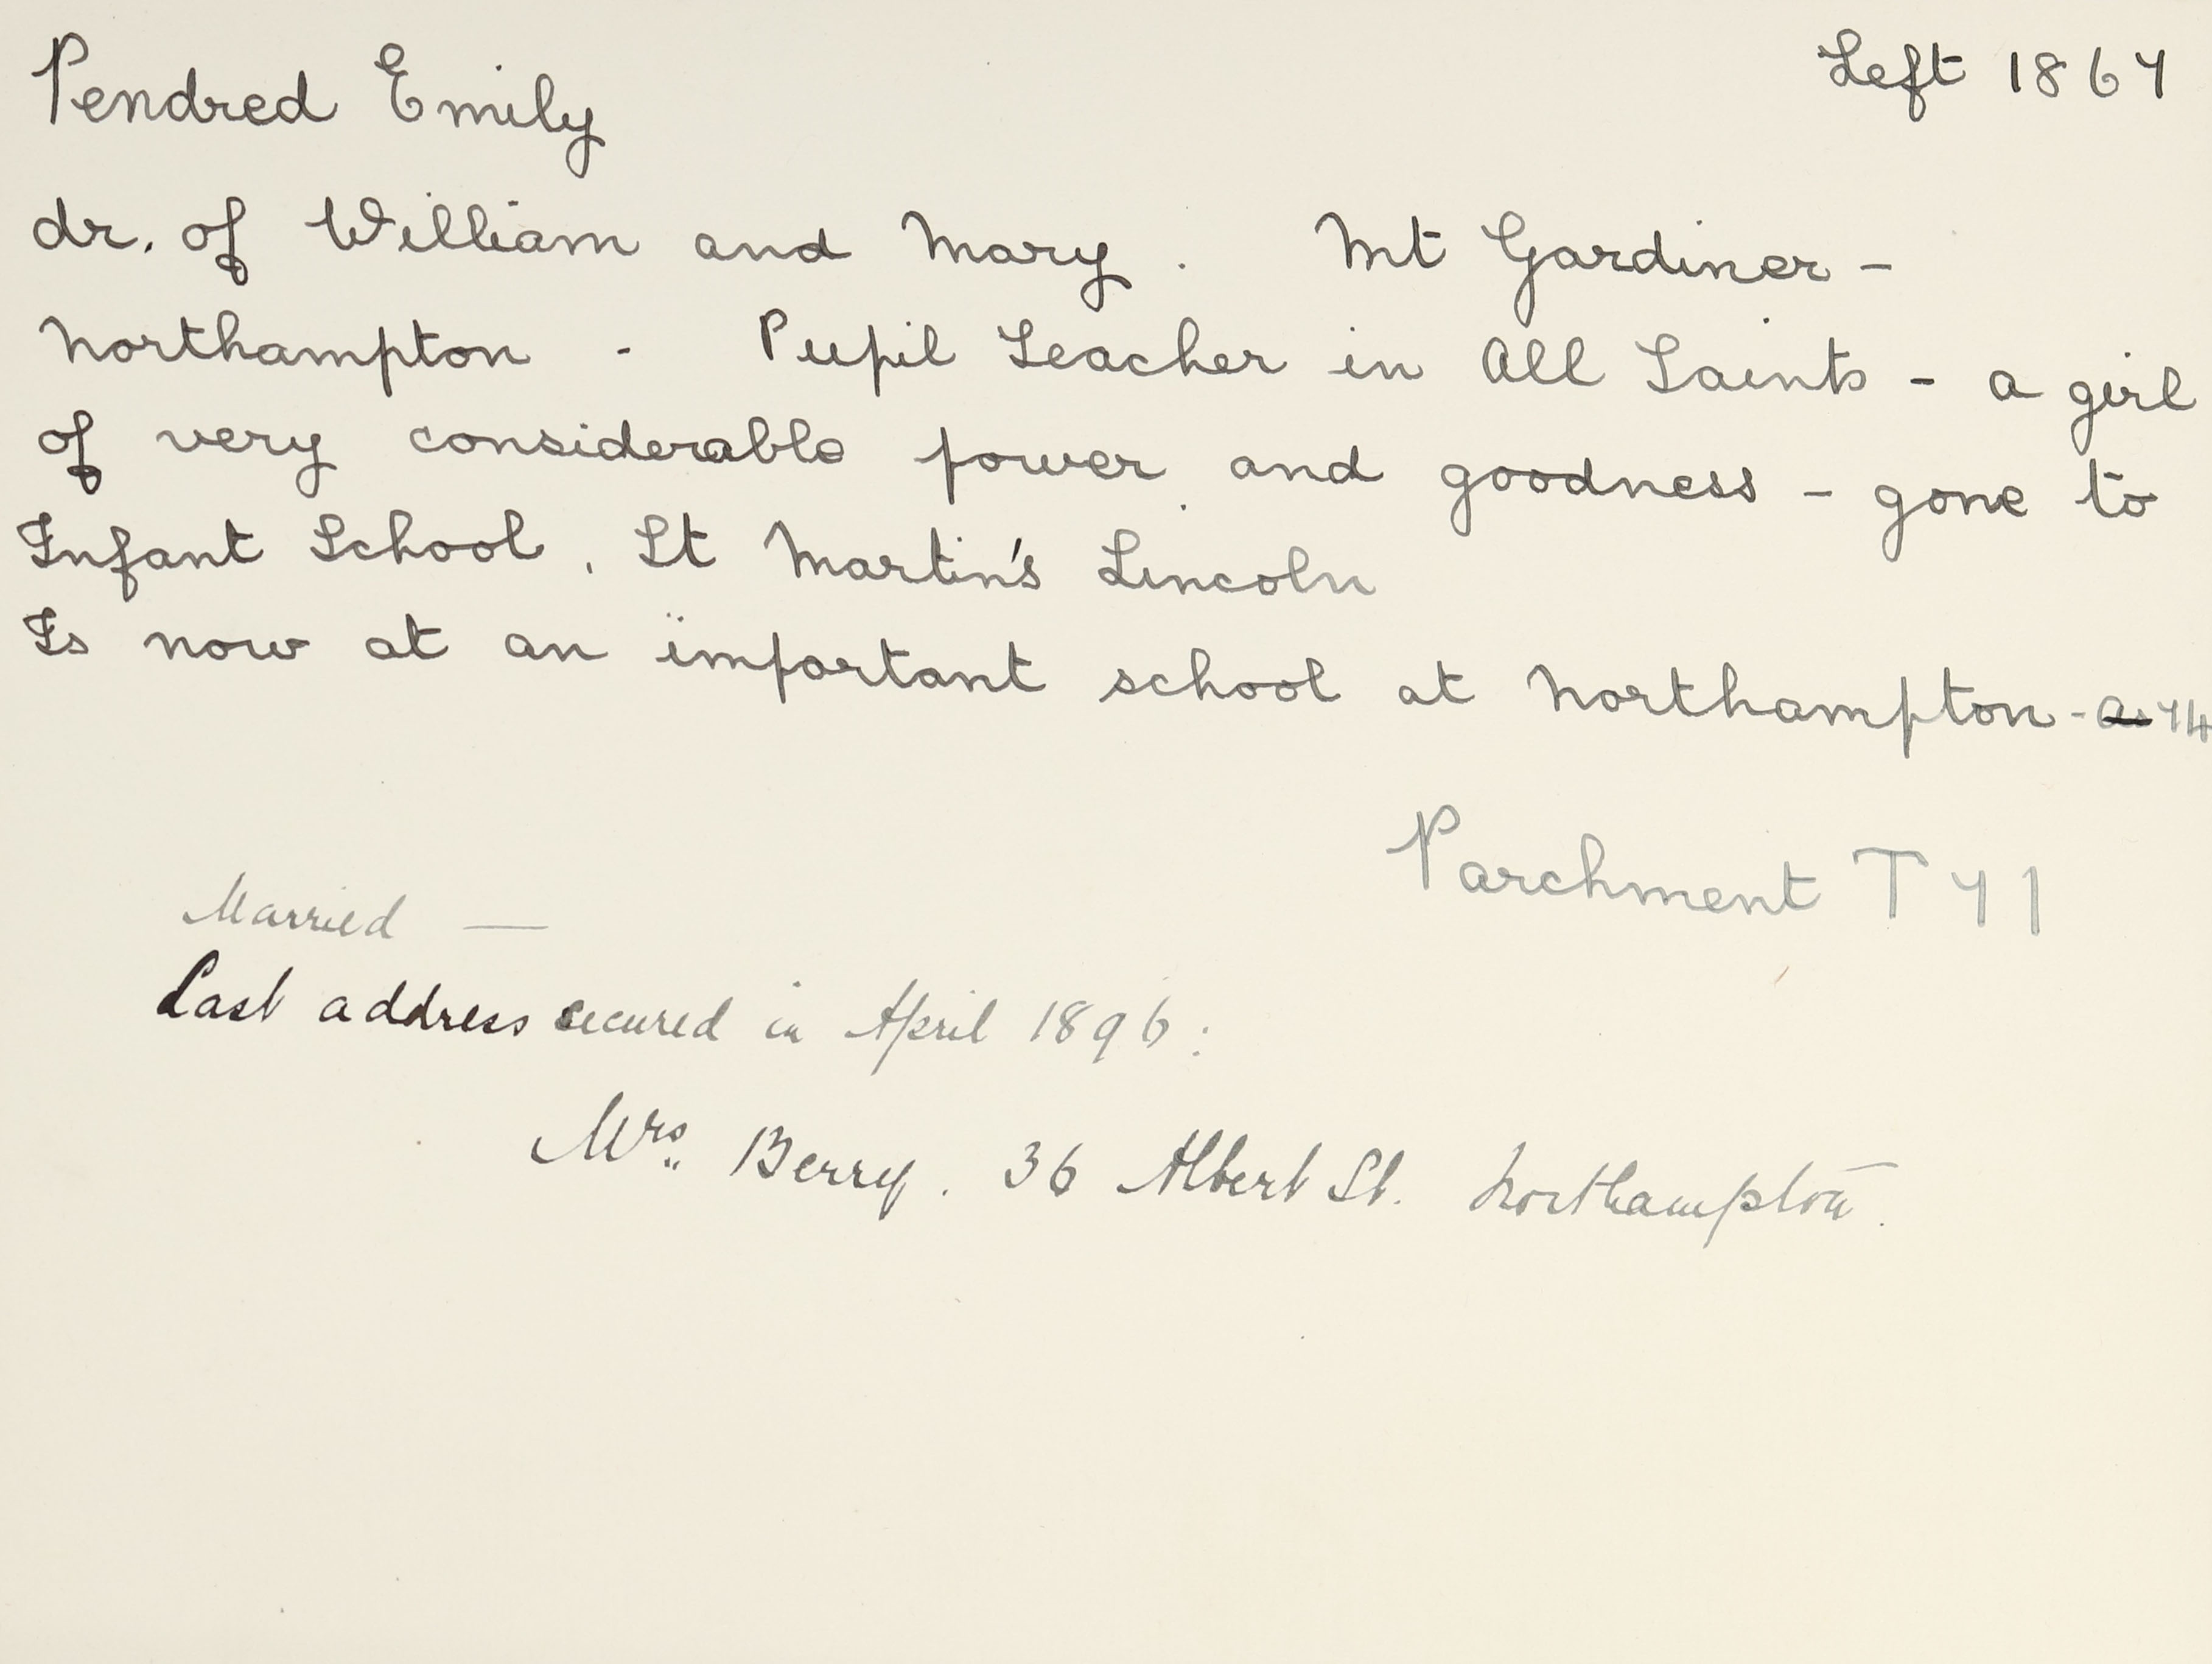 Pendred Emily Left 1867
dr. of William and Mary. Mt Gardiner -
Northampton - Pupil Teacher in All Saints - a girl
of very considerable power and goodness - gone to
Infant School, St Martin's Lincoln
Is now at an important school at Northampton - 74
Parchment T 71
Married —
Last address secured in April 1896:
Mrs. Berry. 36 Albert St. Northampton.